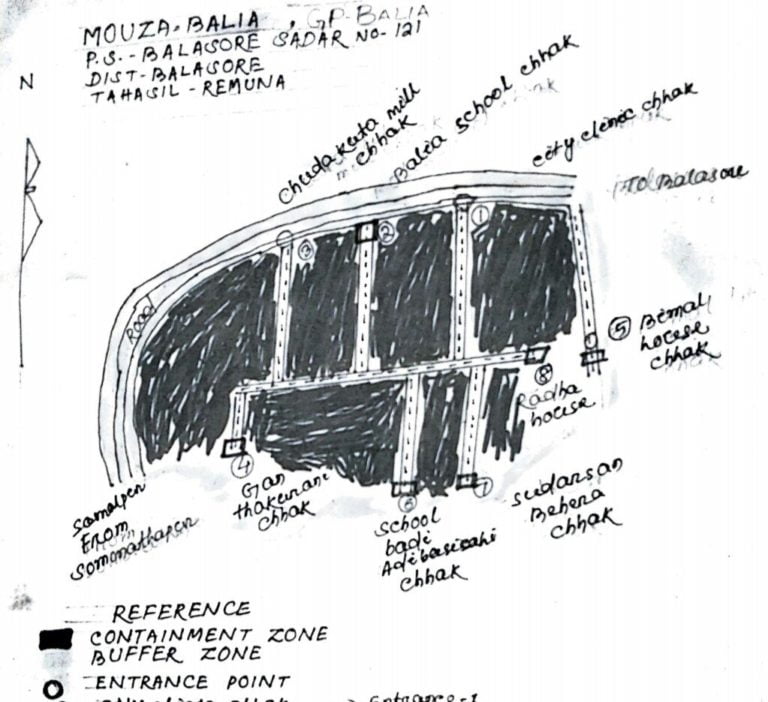 MOUZA-BALIA, GP-BALIA
P.S.-BALASORE SADAR NO-121
DIST-BALASORE
TAHASIL-REMUNA
N
Chudakuta mill
chhak
Balia school chhak
city clinic chhak
TO Balasore
Road
①
②
③
⑤ Bimal
house
chhak
⑧
Radha
house
④
Gan
thakurani
chhak
⑥
School
badi
Adibasisahi
chhak
⑦
sudarsan
Behera
chhak
From
REFERENCE
CONTAINMENT ZONE
BUFFER ZONE
ENTRANCE POINT
Entrance-1